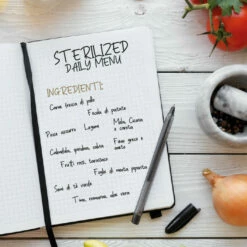 STERILIZED
DAILY MENU
INGREDIENTI:
Carne fresca di pollo
Fecola di patate
Pesce azzurro
Legumi
Mela, Carota
e carota
Calendula, spirulina, ortica
Fieno greco e
menta
Frutti rossi, tarassaco
Foglie di menta piperita
Semi di tè verde
Timo, romarino, aloe vera